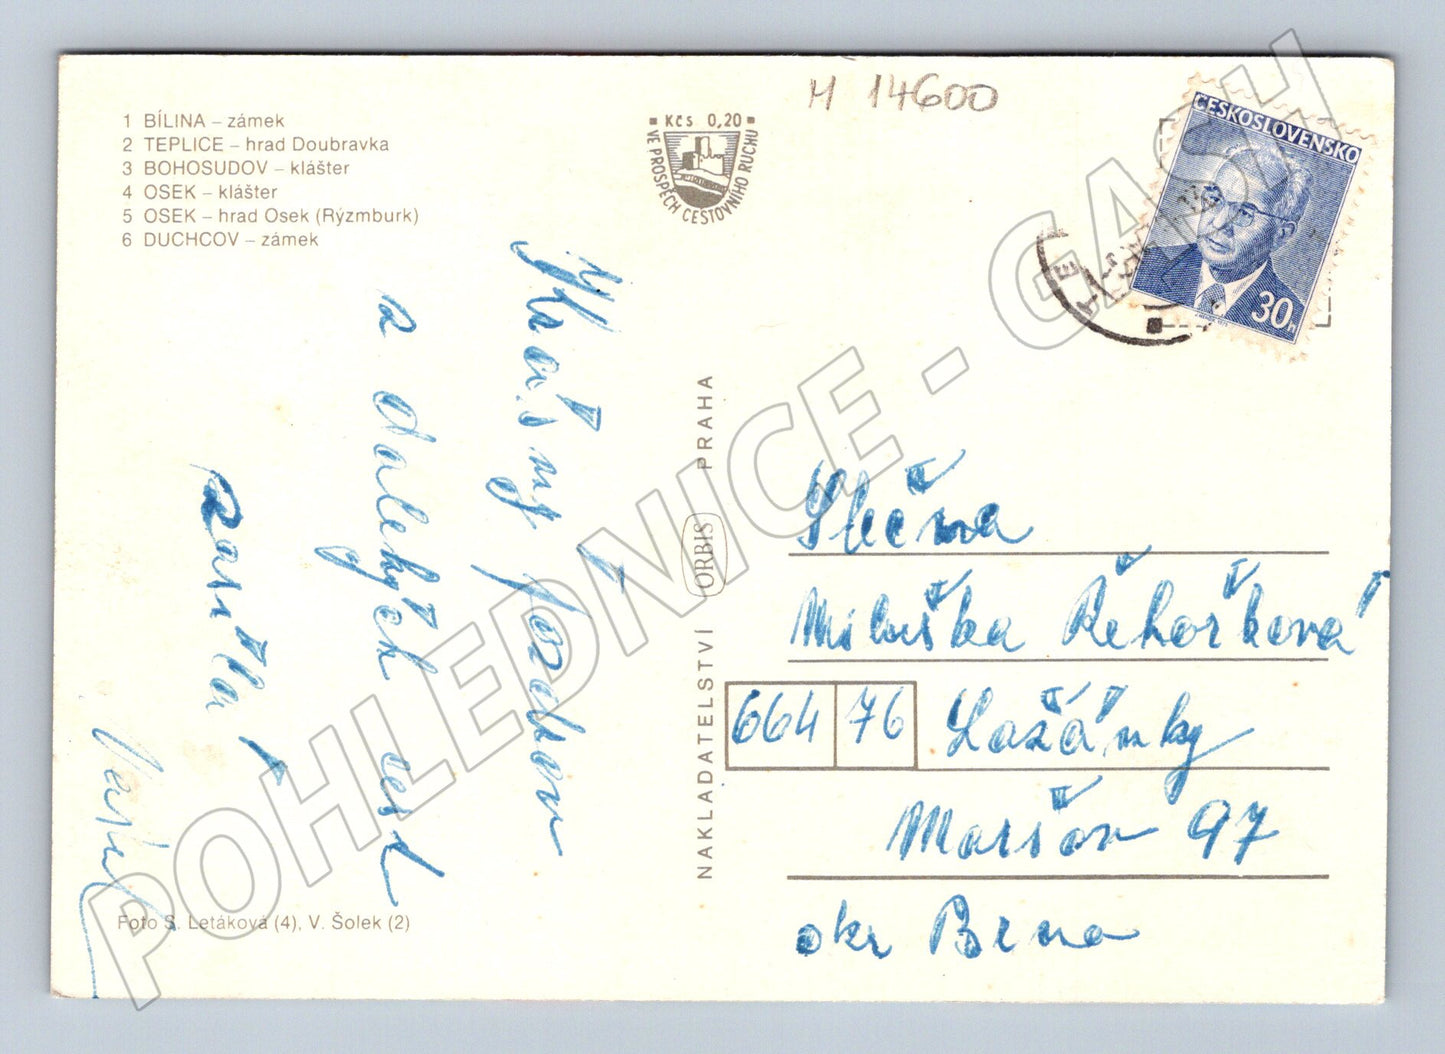 M 14600
1 BÍLINA – zámek
2 TEPLICE – hrad Doubravka
3 BOHOSUDOV – klášter
4 OSEK – klášter
5 OSEK – hrad Osek (Rýzmburk)
6 DUCHCOV – zámek
Kčs 0,20
VE PROSPĚCH CESTOVNÍHO RUCHU
ČESKOSLOVENSKO
30h
Krásný pozdrav
z dalekých cest
NAKLADATELSTVÍ ORBIS PRAHA
Slečna
Miluška Řehořková
664 76 Lažánky
Maršov 97
okr Brno
Foto S. Letáková (4), V. Šolek (2)
POHLEDNICE - GASH